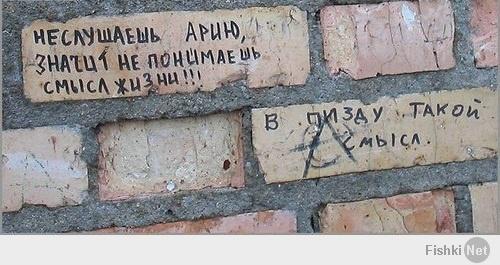 НЕСЛУШАЕШЬ АРИЮ,
ЗНАЧИТ НЕ ПОНИМАЕШЬ
СМЫСЛ ЖИЗНИ!!!
В ПИЗДУ ТАКОЙ
СМЫСЛ.
Fishki Net